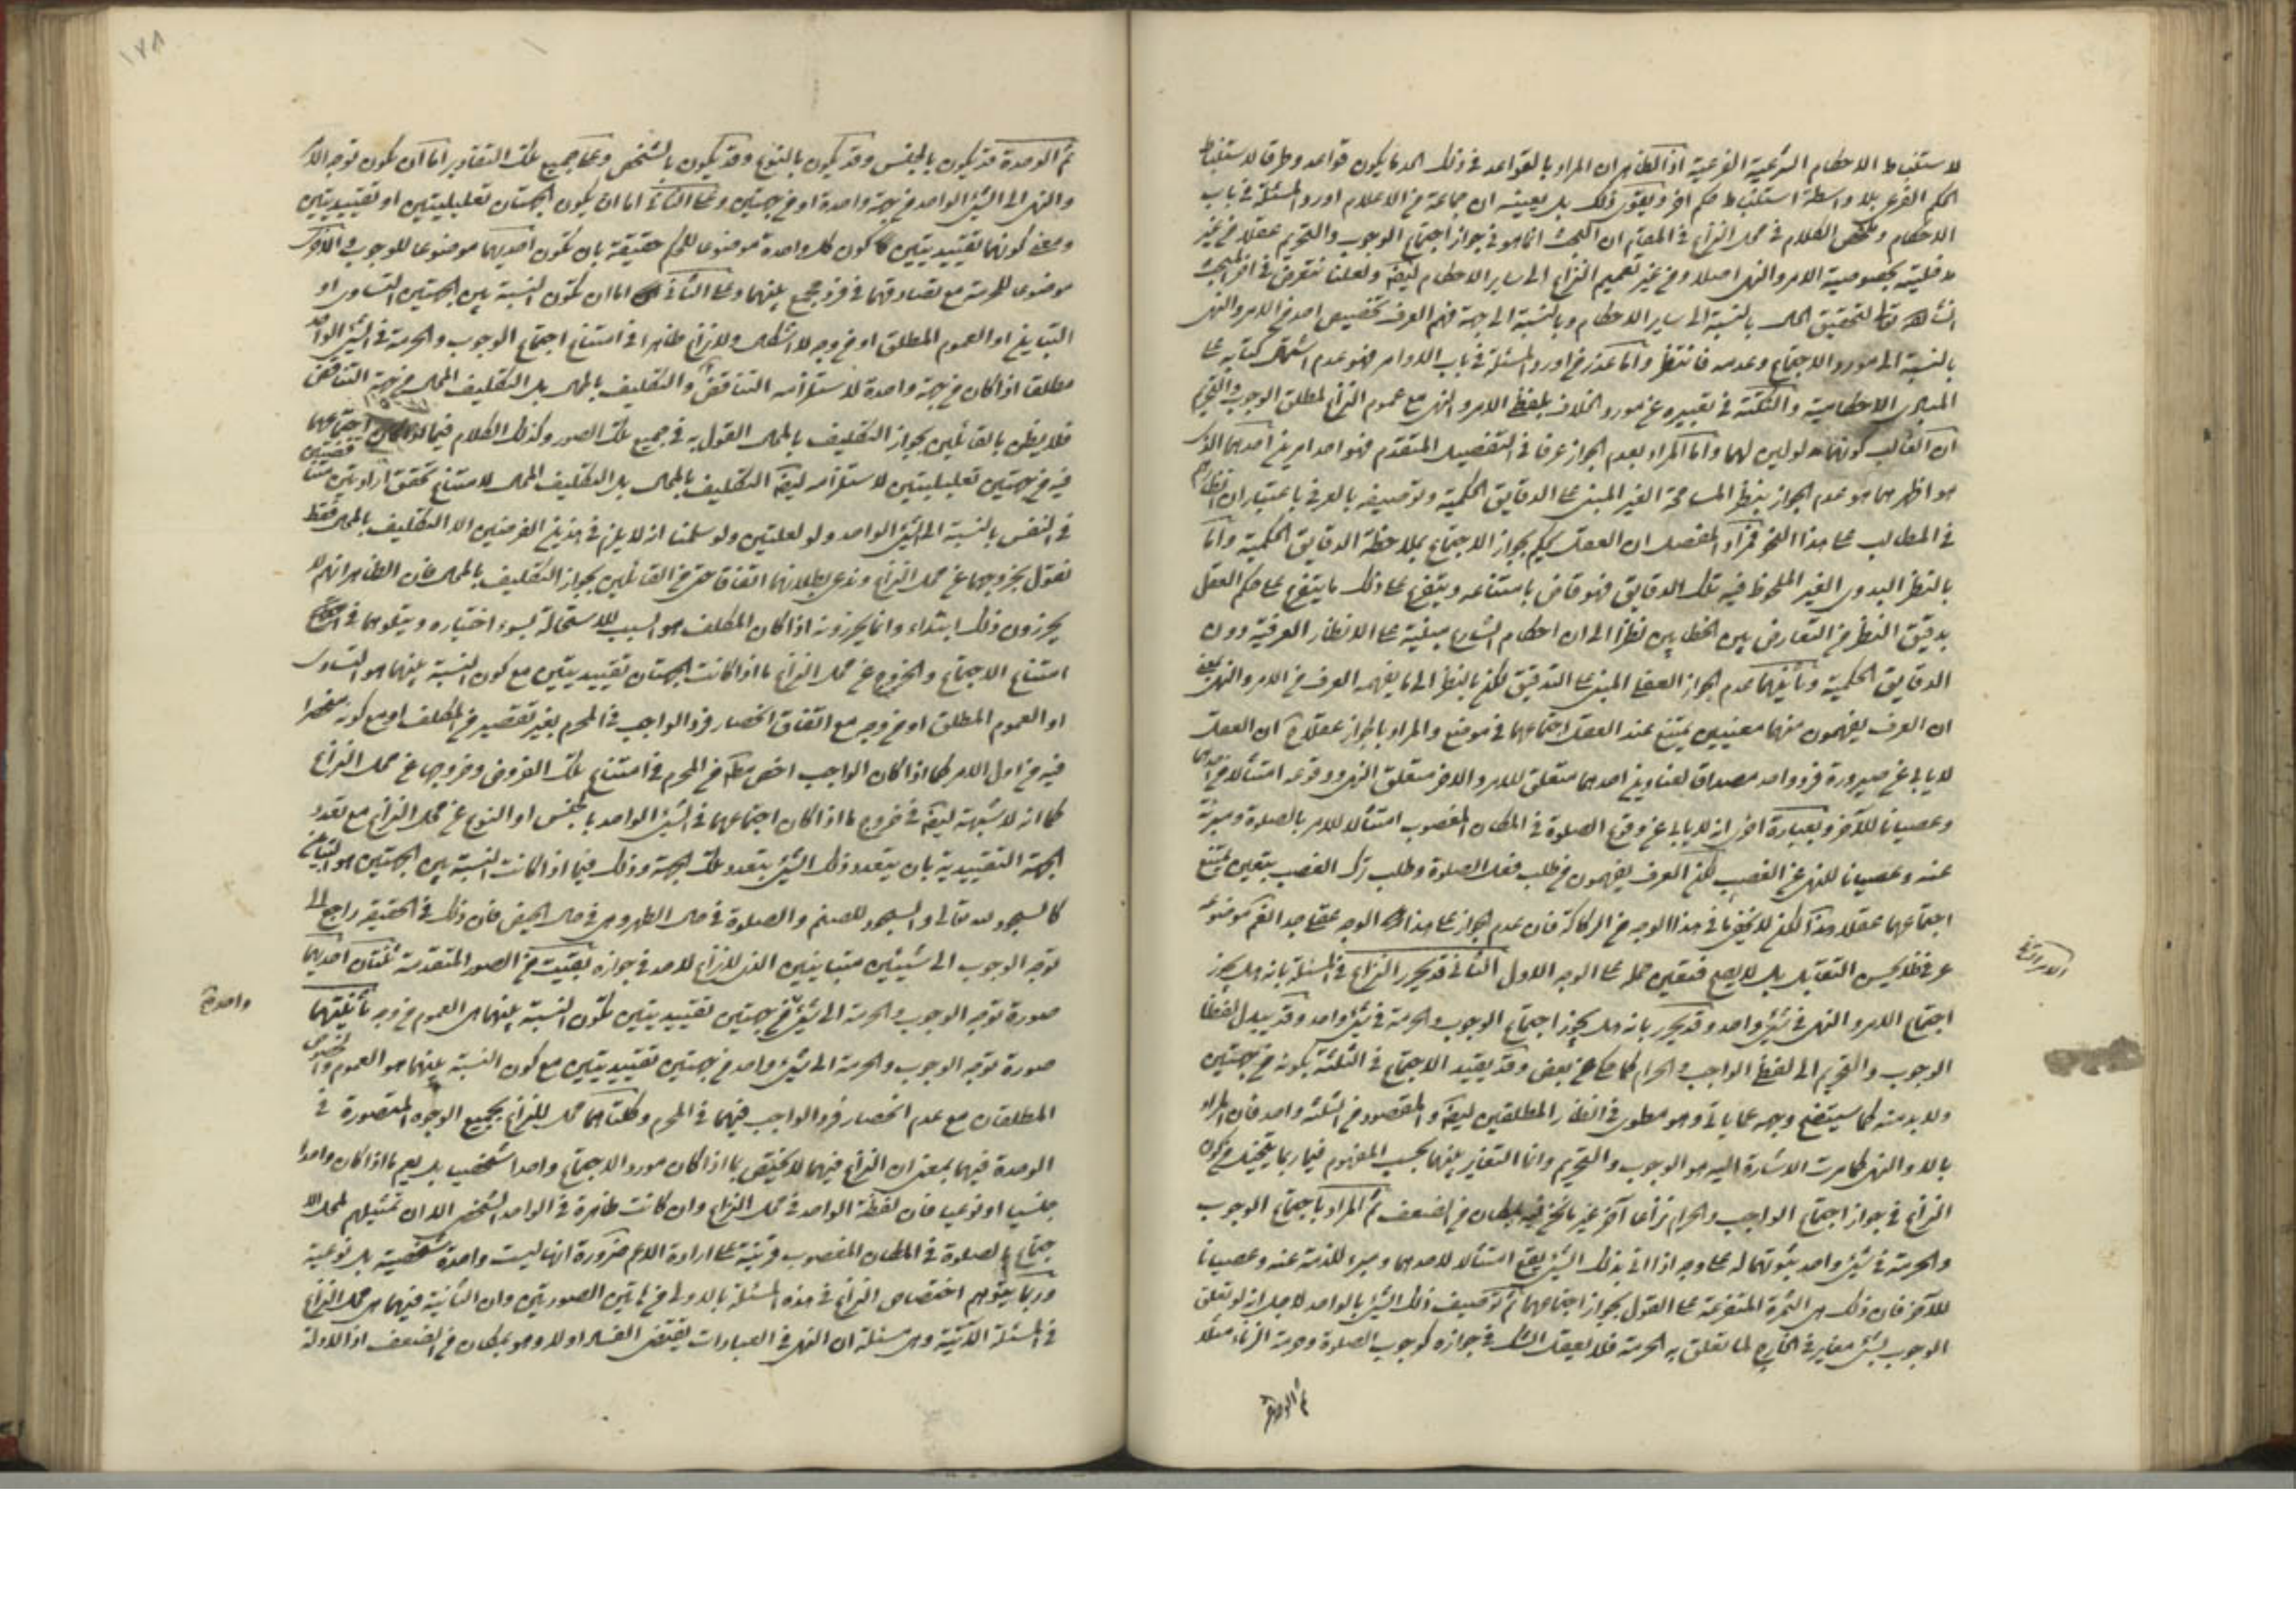 لاستنباط الاحكام الشرعية الفرعية اذ الظاهر ان المراد بالقواعد في ذلك الحد ما يكون قواعد وطرقا لاستنباط
الحكم الفرعي بلا واسطة استنباط حكم اخر ويقوى ذلك بل يعينه ان جماعة من الاعلام اوردوا المسئلة في باب
الاحكام وملخص الكلام في محل النزاع في المقام ان البحث انما هو في جواز اجتماع الوجوب والتحريم عقلا من غير
مدخلية بخصوصية الامر والنهي اصلا ومن غير تعميم النزاع الى ساير الاحكام ايضا ولعلنا نتعرض في اخر المبحث
انشاء الله تعالى لتحقيق الحال بالنسبة الى ساير الاحكام وبالنسبة الى جهة فهم العرف تخصيص احد من الامر والنهي
بالنسبة الى مورد الاجتماع وعدمه فانتظر واما عذر من اورد المسئلة في باب الاوامر فهو عدم اشتمال كتابه على
المبادى الاحكامية والنكتة في تعبيره عن مورد الخلاف بلفظ الامر والنهي مع عموم النزاع لمطلق الوجوب والتحريم
ان الغالب كونهما مدلولين لهما واما المراد بعدم الجواز عرفا في التفصيل المتقدم فهو احد امرين احدهما الذي
هو اظهرهما هو عدم الجواز بنظر المسامحة الغير المبنى على الدقايق الحكمية وتوصيفه بالعرفي باعتبار ان انظارهم
في المطالب على هذا النحو فمراد المفصل ان العقل يحكم بجواز الاجتماع بملاحظة الدقايق الحكمية واما
بالنظر البدوى الغير الملحوظ فيه تلك الدقايق فهو قاض بامتناعه ويتفرع على ذلك ما يتفرع على حكم العقل
بدقيق النظر من التعارض بين الخطابين نظرا الى ان احكام الشارع مبنية على الانظار العرفية دون
الدقايق الحكمية وثانيهما عدم الجواز العقلي المبنى على التدقيق لكن بالنظر الى ما يفهمه العرف من الامر والنهي بمعنى
ان العرف يفهمون منهما معنيين يمتنع عند العقل اجتماعهما في موضع والمراد بالجواز عقلا ح ان العقل
لا يابى عن صيرورة فرد واحد مصداقا لعناوين احدهما متعلق للامر والاخر متعلق النهي ووقوعه امتثالا من احدهما
وعصيانا للآخر وبعبارة اخرى انه لا يابى عن وقوع الصلوة في المكان المغصوب امتثالا للامر بالصلوة ومبرئة
عنه وعصيانا للنهي عن الغصب لكن العرف يفهمون من طلب فعل الصلوة وطلب ترك الغصب يتعين يمتنع
اجتماعهما عقلا هذا لكن لا يخفى ما في هذا الوجه من الركاكة فان عدم الجواز على هذا الوجه عقلي جدا الغرض موضوعه
عرفي فلا يحسن التقابل بل لا يصح فتعين حمله على الوجه الاول الثاني قد يحرر النزاع في المسئلة بانه هل يجوز
اجتماع الامر والنهي في شيئ واحد وقد يحرر بانه هل يجوز اجتماع الوجوب والحرمة في شيئ واحد وقد يبدل لفظا
الوجوب والتحريم الى لفظ الواجب والحرام كما حكى عن بعض وقد يقيد الاجتماع في الثلثة بكونه من جهتين
ولا بد منه كما سيتضح وجهه مما ياتي وهو مطوى في انظار المطلقين ايضا والمقصود من الثلثة واحد فان المراد
بالامر والنهي كما مرت الاشارة اليه هو الوجوب والتحريم وانما التغاير بينهما بحسب المفهوم فما ربما يتخيل من كون
النزاع في جواز اجتماع الواجب والحرام نزاعا آخر غير ما نحن فيه بمكان من الضعف ثم المراد باجتماع الوجوب
والحرمة في شيئ واحد ثبوتهما له على وجه اذا اتى بذلك الشيئ يقع امتثالا لاحدهما ومبرء للذمة عنه وعصيانا
للآخر فان ذلك هي الثمرة المتفرعة على القول بجواز اجتماعهما ثم توصيف ذلك الشيئ بالواحد لاجل انه لو تعلق
الوجوب بشيئ مغاير في الخارج لما تعلق به الحرمة فلا يعقل الشك في جوازه كوجوب الصلوة وحرمة الزناء مثلا
ثم الوحدة
ثم الوحدة قد يكون بالجنس وقد يكون بالنوع وقد يكون بالشخص وعلى جميع تلك التقادير اما ان يكون توجه الامر
والنهي الى الشيئ الواحد من جهة واحدة او من جهتين وعلى الثاني اما ان يكون الجهتان تعليليتين او تقييديتين
ومعنى كونهما تقييديتين كون كل واحدة موضوعا للحكم حقيقة بان تكون احديهما موضوعا للوجوب والاخرى
موضوعا للحرمة مع تصادقهما في فرد مجمع بينهما وعلى الثاني اما ان تكون النسبة بين الجهتين التساوى او
التباين او العموم المطلق او من وجه لا اشكال ولا نزاع ظاهرا في امتناع اجتماع الوجوب والحرمة في الشيئ الواحد
مطلقا اذا كان من جهة واحدة لاستلزامه التناقض والتكليف بالمحال بل التكليف المحال من جهة التناقض
فلا يظن بالقائلين بجواز التكليف بالمحال القول به في جميع تلك الصور وكذلك الكلام فيما اذا كان اجتماعهما
فيه من جهتين تعليليتين لاستلزامه ايضا التكليف بالمحال بل التكليف المحال لامتناع تحقق ارادتين متناقضتين
في النفس بالنسبة الى الشيئ الواحد ولو لعلتين ولو سلمنا انه لا يلزم في هذين الفرضين الا التكليف بالمحال فقط
نقول بخروجهما عن محل النزاع وندعى بطلانهما اتفاقا حتى من القائلين بجواز التكليف بالمحال فان الظاهر انهم لا
يجوزون ذلك ابتداء وانما يجوزونه اذا كان المكلف هو السبب للاستحالة بسوء اختياره ويتلوهما في
امتناع الاجتماع والخروج عن محل النزاع ما اذا كانت الجهتان تقييديتين مع كون النسبة بينهما هو التساوى
او العموم المطلق او من وجه مع اتفاق انحصار فرد الواجب في المحرم بغير تقصير من المكلف او مع كونه منحصرا
فيه من اول الامر كما اذا كان الواجب اخص مطلقا من المحرم في امتناع تلك الفروض وخروجها عن محل النزاع
كما انه لا شبهة ايضا في خروج ما اذا كان اجتماعهما في الشيئ الواحد بالجنس او النوع عن محل النزاع مع تعدد
الجهة التقييدية بان يتعدد ذلك الشيئ بتعدد تلك الجهة وذلك فيما اذا كانت النسبة بين الجهتين هو التباين
كالسجود لله تعالى والسجود للصنم والصلوة في حال الطهر وهي في حال الحيض فان ذلك في الحقيقة راجع الى
توجه الوجوب الى شيئين متباينين الذي لا نزاع لاحد في جوازه بقيت من الصور المتقدمة ثنتان احديهما
صورة توجه الوجوب والحرمة الى شيئ من جهتين تقييديتين تكون النسبة بينهما هي العموم من وجه ثانيتهما
واحدة
صورة توجه الوجوب والحرمة الى شيئ واحد من جهتين تقييديتين مع كون النسبة بينهما هو العموم والخصوص
المطلقان مع عدم انحصار فرد الواجب فيهما في المحرم وكلتاهما محل للنزاع بجميع الوجوه المتصورة في
الوحدة فيهما بمعنى ان النزاع فيهما لا يختص بما اذا كان مورد الاجتماع واحدا شخصيا بل يعم ما اذا كان واحدا
جنسيا او نوعيا فان لفظة الواحد في محل النزاع وان كانت ظاهرة في الواحد الشخصي الا ان تمثيلهم لمحل الا
جتماع بالصلوة في المكان المغصوب قرينة على ارادة الاعم ضرورة انها ليست واحدة شخصية بل نوعية
وربما يتوهم اختصاص النزاع في هذه المسئلة بالاولى من هاتين الصورتين وان الثانية فيهما هي محل النزاع
في المسئلة الآتية وهي مسئلة ان النهي في العبادات يقتضى الفساد اولا وهو بمكان من الضعف اذ الادلة